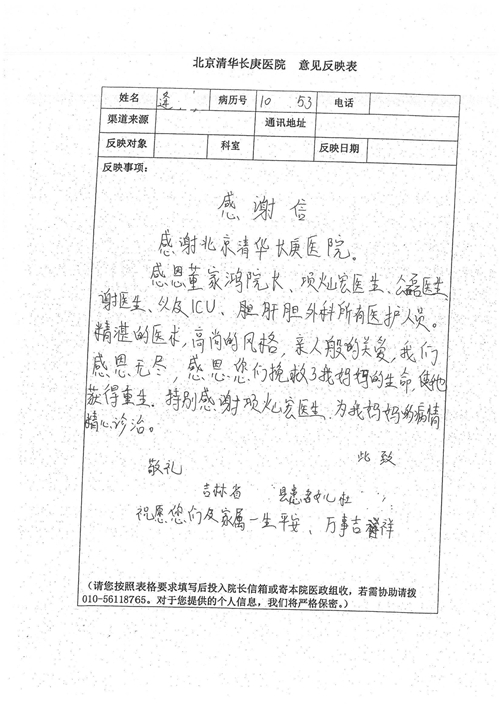 北京清华长庚医院 意见反映表
姓名 逢 病历号 10 53 电话
渠道来源 通讯地址
反映对象 科室 反映日期
反映事项：
感谢信
感谢北京清华长庚医院。
感恩董家鸿院长、项灿宏医生、公磊医生
谢医生、以及ICU、胆肝胆外科所有医护人员。
精湛的医术，高尚的风格，亲人般的关爱，我们
感恩无尽，感恩您们挽救了我妈妈的生命，使她
获得重生。特别感谢项灿宏医生，为我妈妈的病情
精心诊治。
此致
敬礼
吉林省 县患者
祝愿您们及家属一生平安、万事吉祥
(请您按照表格要求填写后投入院长信箱或寄本院医政组收，若需协助请拨
010-56118765。对于您提供的个人信息，我们将严格保密。)